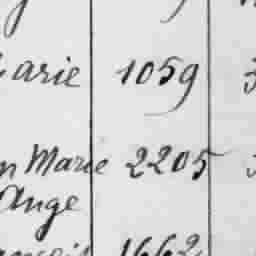 arie 1059
n Marie 2205
Ange
1662